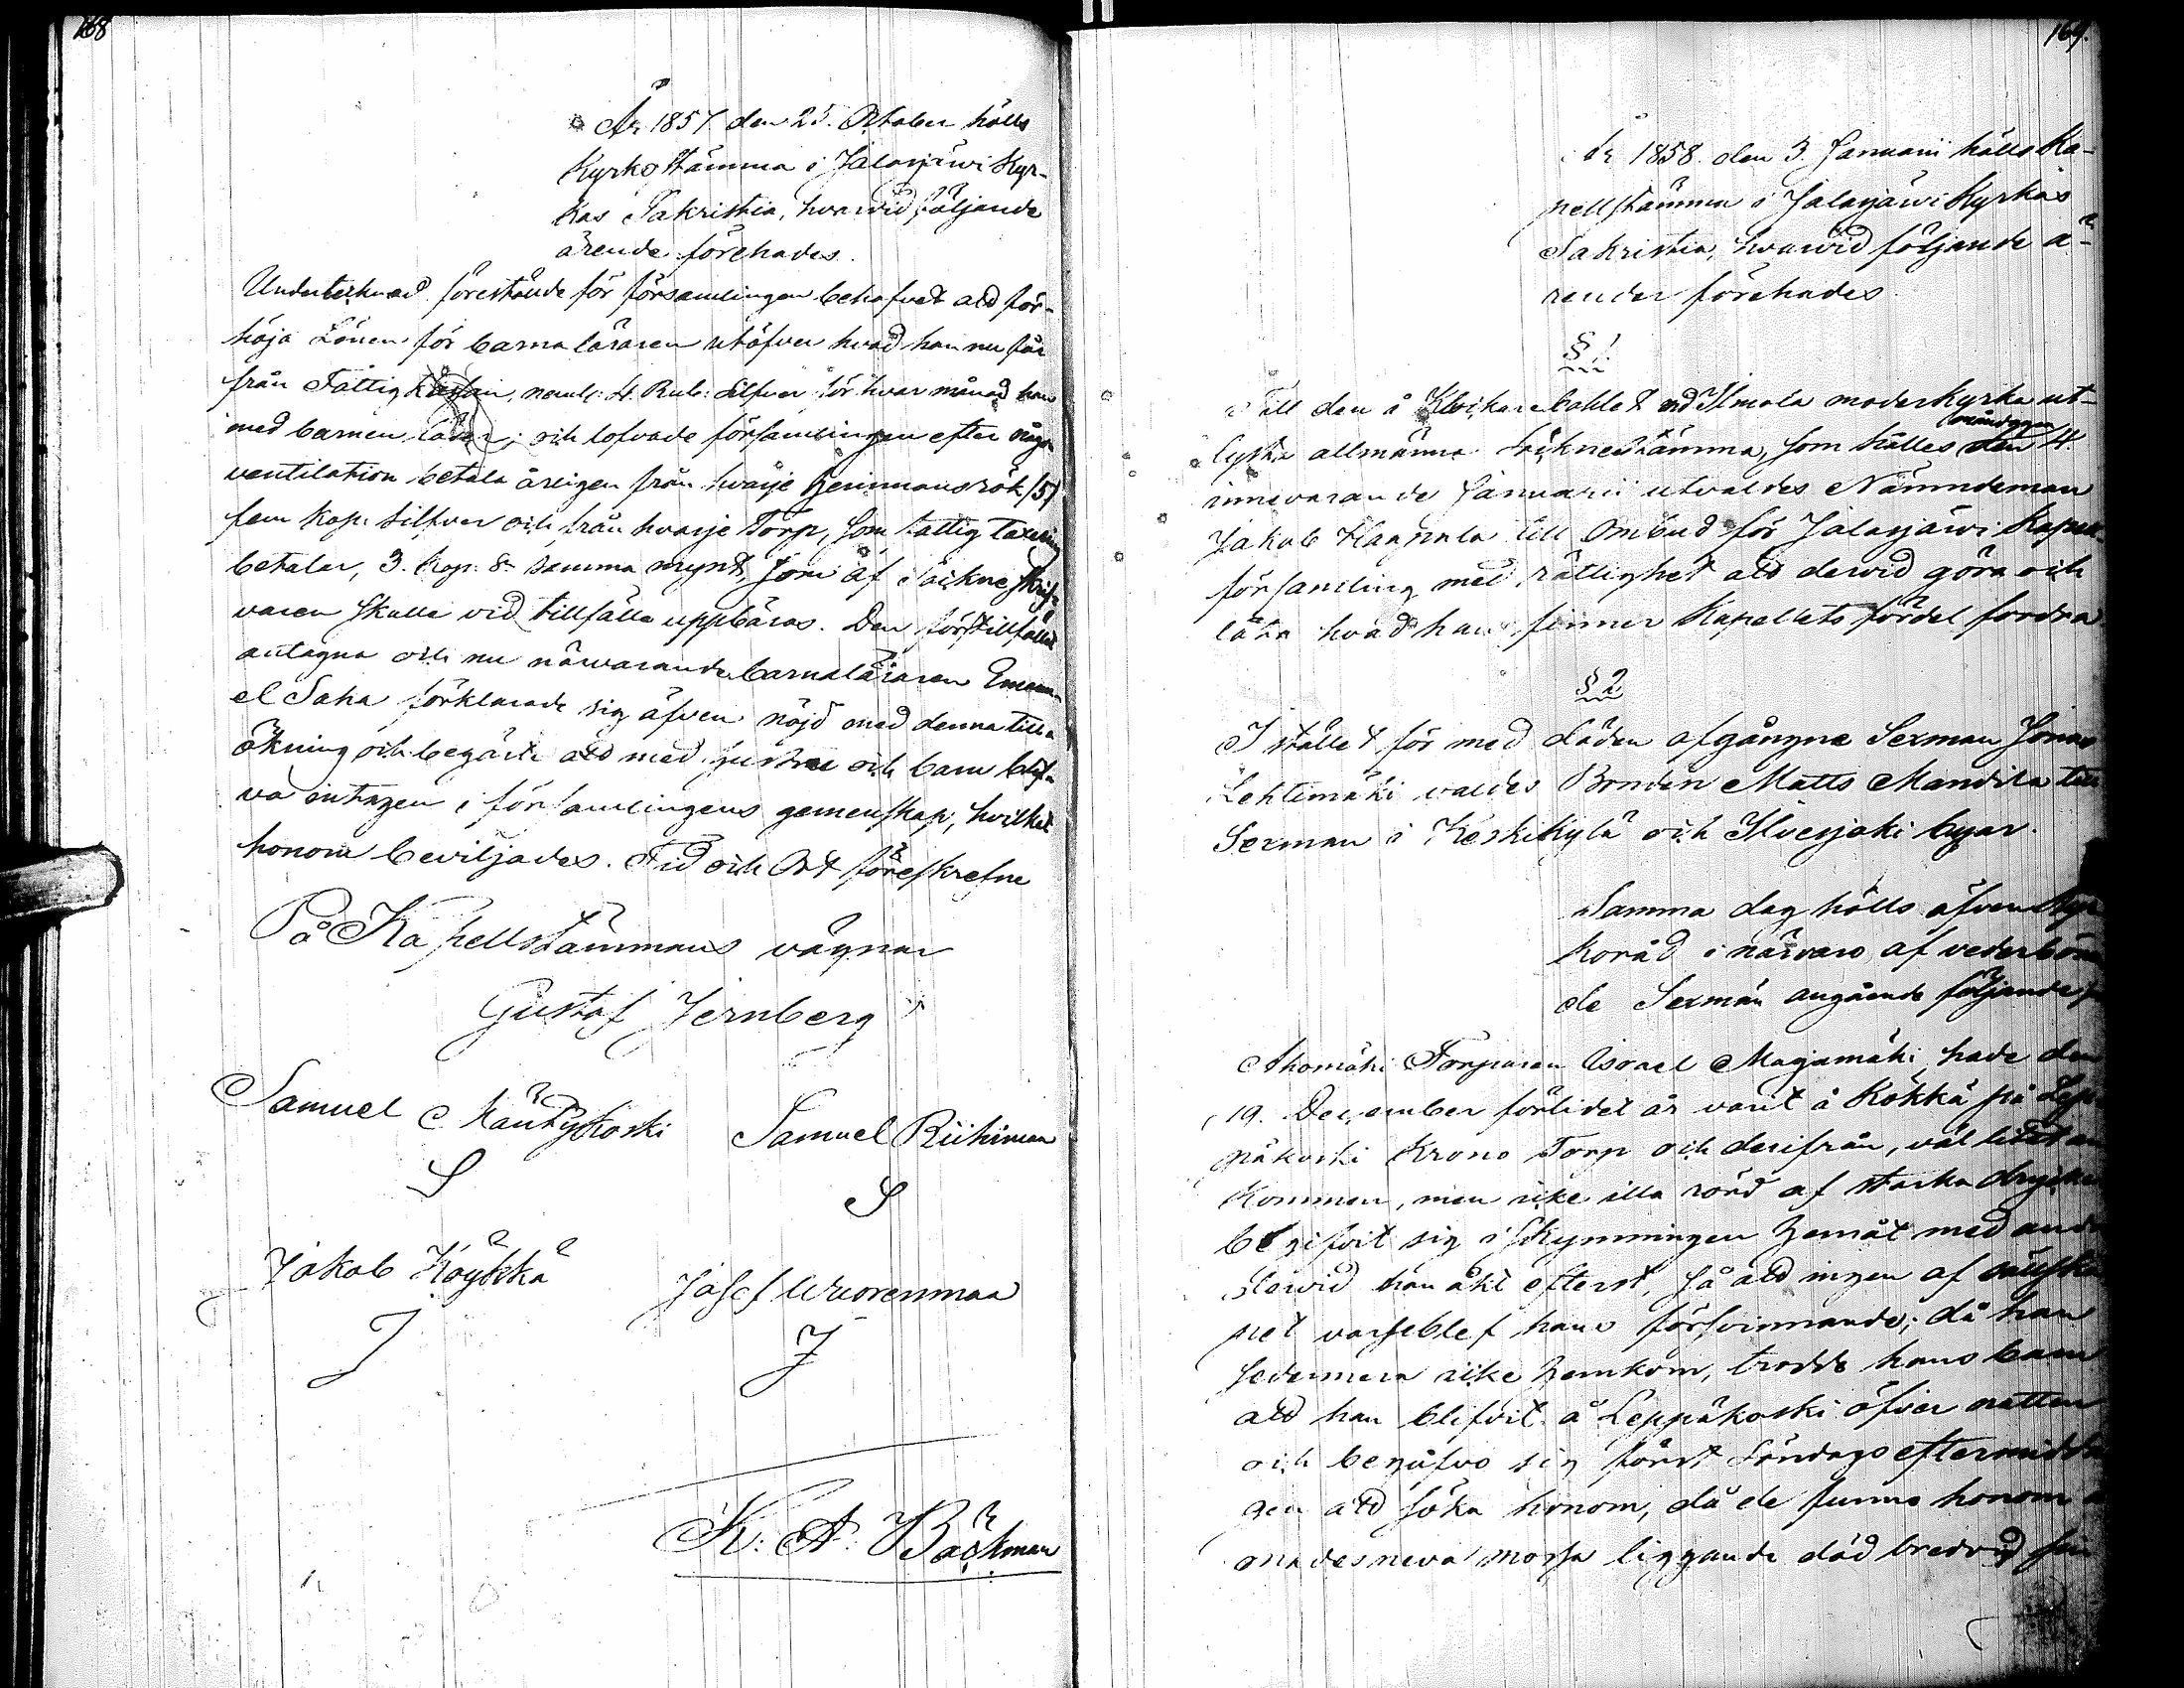 168
År 1857 den 25. October hölls
Kyrkostämma i Jalasjärwi Kyr-
kas Sakristia, hvarvid följande
ärende förehades.
Undertecknad förestälde för församlingen behofvet att för-
höja Lönen för barnaläraren utöfver hvad han nu får
från Fattigkassan, neml: 4. Rub: Silfver för hvar månad han
med barnen läser; och lofvade församlingen efter någon
ventilation betala årligen från hvarje Hemmansrök /5/
fem Kop: silfver och från hvarje Torp, som fattig taxering
betalar, 3. Kop: S: samma mynt, som af Sockneskrif-
varen skulle vid tillfälle uppbäras. Den för tillfället
antagna och nu närvarande barnaläraren Emanu-
el Saha förklarade sig äfven nöjd med denna till-
ökning och begärte att med hustru och barn blif-
va intagen i församlingens gemenskap, hvilket
honom beviljades. Tid och Ort föreskrefne
På Kapellstämmans vägnar
Gustaf Jernberg
Samuel Mäntykoski Samuel Riihimaa
S S
Jakob Köykkä Josef Wuorenmaa
J J
K. A. Bäckman
169.
År 1858. den 3. Januarii hölls Ka-
pellstämma i Jalasjärwi Kyrkas
Sakristia, hvarvid följande ä-
render förehades
§ 1
Till den å Klockarebohlet vid Ilmola moderkyrka ut-
måndagen
lysta allmänna Socknestämma, som hålles den 4.
innevarande Januarii utvaldes Nämndeman
Jakob Haapala till Ombud för Jalasjärwi Kapell-
församling med rättighet att dervid göra och
låta hvad han finner Kapellets fördel fordra
§ 2
I stället för med döden afgångne Sexman Jonas
Lehtimäki valdes Bonden Matts Mandila till
Sexman i Keskikylä och Ilvesjoki byar.
Samma dag hölls äfven Kyr-
koråd i närvaro af vederböran
de Sexmän angående följande
Ahomäki Torparen Israel Magamäki, hade den
19. December förlidet år varit å Kökkä på Lep-
päkoski Krono Torp och derifrån, väl litet an
kommen, men icke illa rörd af starka drycker
begifvit sig i skymningen hemåt med andr
dervid han åkt efterst, så att ingen af sällska
pet varseblef hans försvinnande; då han
sedermera icke hemkom, trodde hans barn
att han blifvit å Leppäkoski öfver natten
och begåfvo sig först Söndags eftermidda
gen att söka honom, då de funno honom
madesneva mossa liggande död bredvid sin